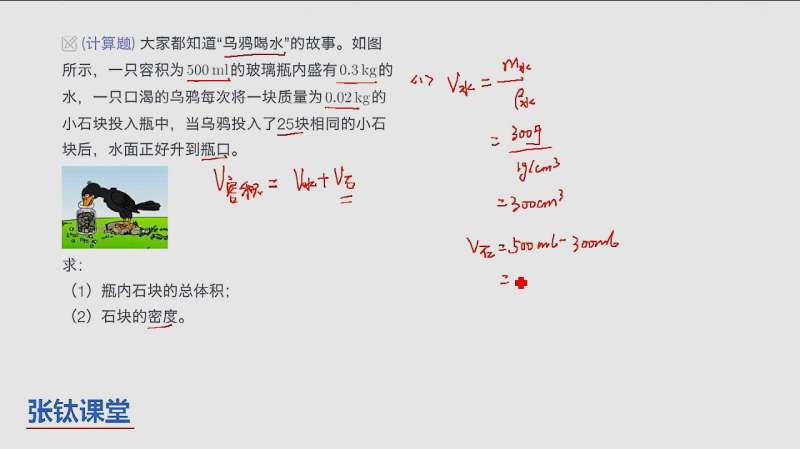 (计算题) 大家都知道“乌鸦喝水”的故事。如图
所示，一只容积为500 ml的玻璃瓶内盛有0.3 kg的
水，一只口渴的乌鸦每次将一块质量为0.02 kg的
小石块投入瓶中，当乌鸦投入了25块相同的小石
块后，水面正好升到瓶口。
V容积 = V水 + V石
求：
（1）瓶内石块的总体积；
（2）石块的密度。
(1) V水 = m水/ρ水
= 300g/1g/cm³
= 300cm³
V石 = 500ml - 300ml
=
张钛课堂